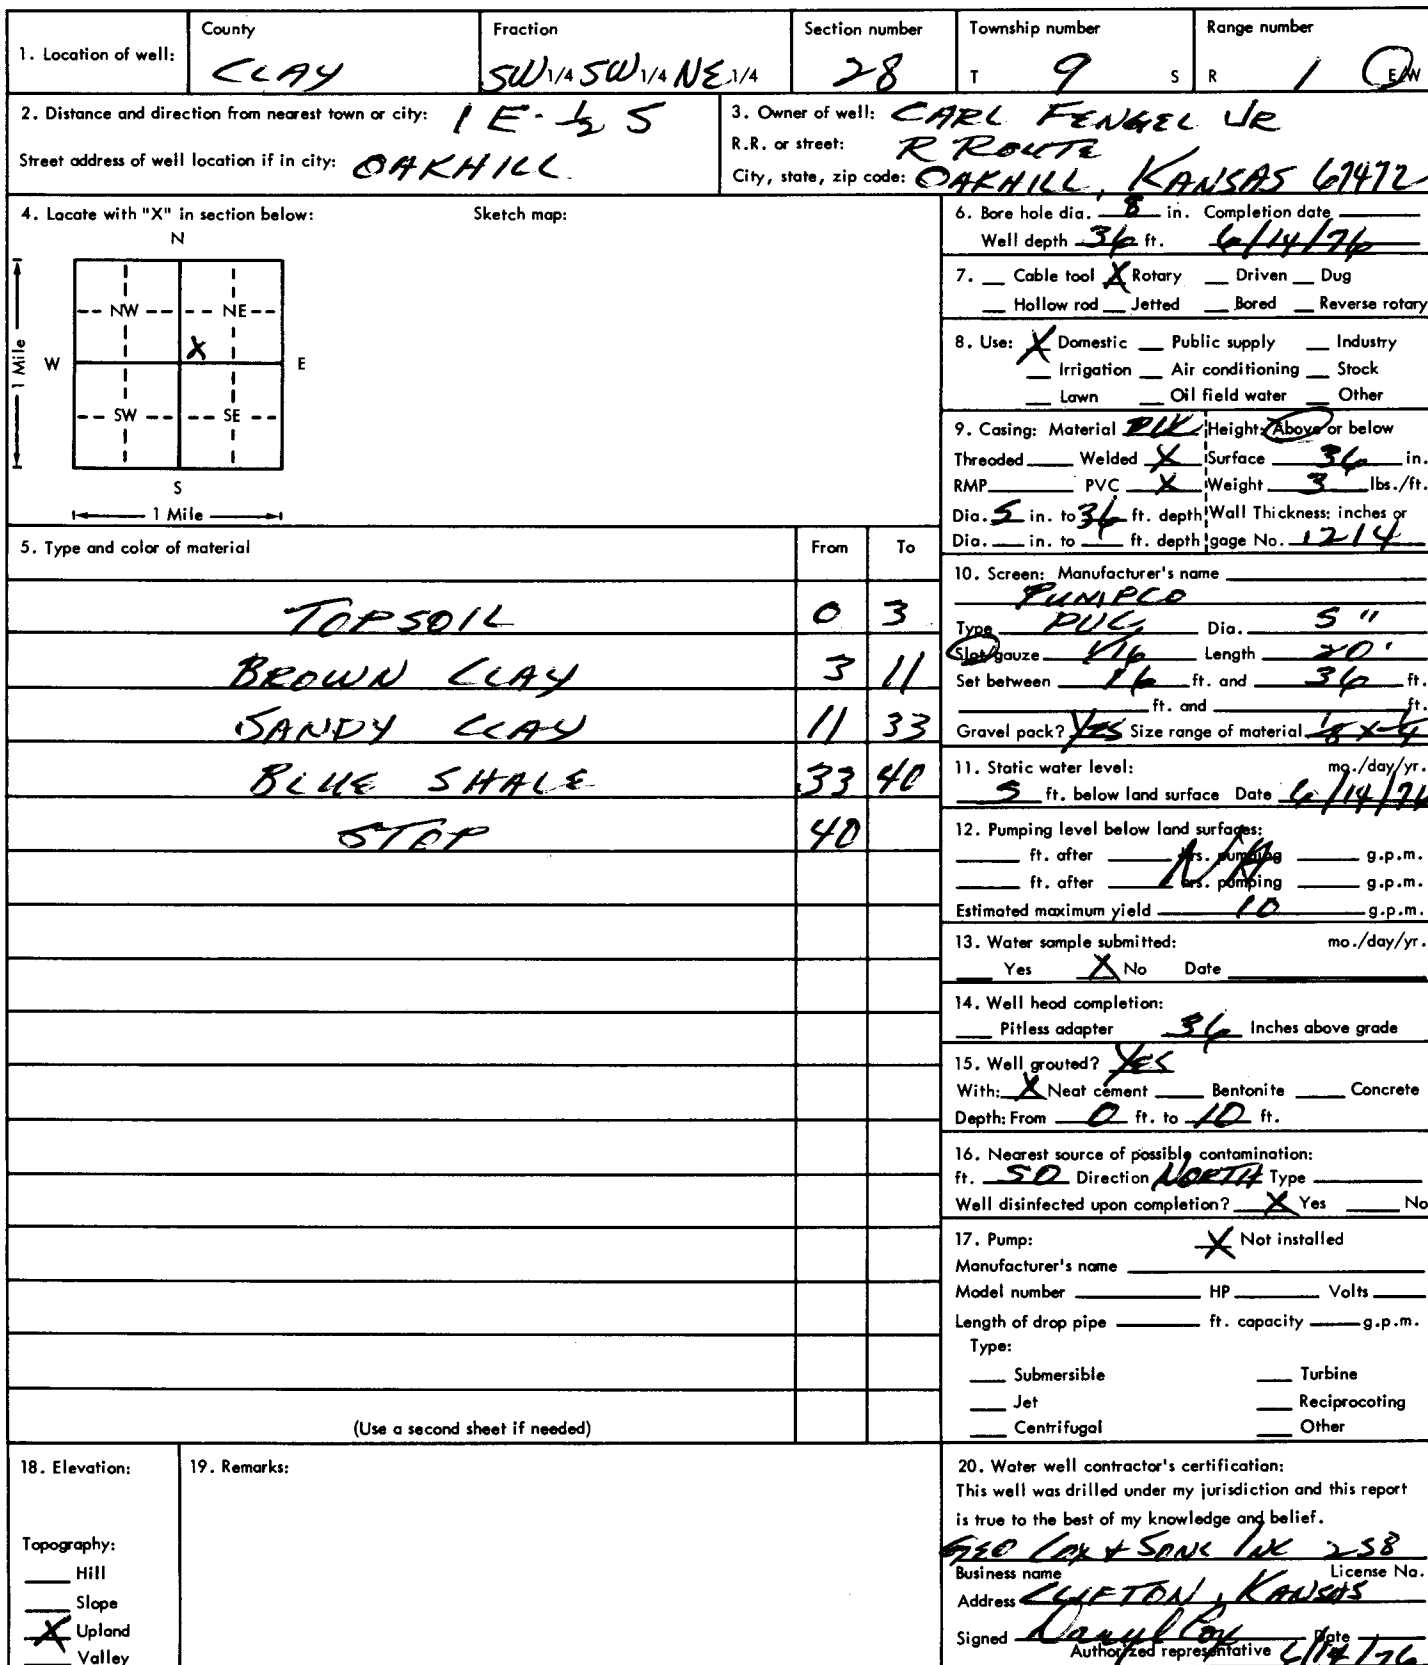 1. Location of well: County CLAY Fraction SW 1/4 SW 1/4 NE 1/4 Section number 28 Township number T 9 S Range number R 1 E/W
2. Distance and direction from nearest town or city: 1 E - 1/2 S
Street address of well location if in city: OAKHILL
3. Owner of well: CARL FENGEL JR
R.R. or street: R ROUTE
City, state, zip code: OAKHILL, KANSAS 67472
4. Locate with "X" in section below: Sketch map:
N
NW NE
X
W E
1 Mile
SW SE
S
1 Mile
5. Type and color of material From To
TOPSOIL 0 3
BROWN CLAY 3 11
SANDY CLAY 11 33
BLUE SHALE 33 40
STOP 40
(Use a second sheet if needed)
6. Bore hole dia. 8 in. Completion date
Well depth 36 ft. 6/14/76
7. Cable tool X Rotary Driven Dug
Hollow rod Jetted Bored Reverse rotary
8. Use: X Domestic Public supply Industry
Irrigation Air conditioning Stock
Lawn Oil field water Other
9. Casing: Material PVC Height: Above or below
Threaded Welded X Surface 36 in.
RMP PVC X Weight 3 lbs./ft.
Dia. 5 in. to 36 ft. depth Wall Thickness: inches or
Dia. in. to ft. depth gage No. .214
10. Screen: Manufacturer's name
Type PVC Dia. 5"
Slot/gauze 1/16 Length 20'
Set between 16 ft. and 36 ft.
ft. and ft.
Gravel pack? YES Size range of material 1/8 x 1/4
11. Static water level: mo./day/yr.
5 ft. below land surface Date 6/14/76
12. Pumping level below land surfaces:
ft. after hrs. pumping g.p.m.
N/A
ft. after hrs. pumping g.p.m.
Estimated maximum yield 10 g.p.m.
13. Water sample submitted: mo./day/yr.
Yes X No Date
14. Well head completion:
Pitless adapter 36 Inches above grade
15. Well grouted? YES
With: X Neat cement Bentonite Concrete
Depth: From 0 ft. to 10 ft.
16. Nearest source of possible contamination:
ft. 50 Direction NORTH Type
Well disinfected upon completion? X Yes No
17. Pump: X Not installed
Manufacturer's name
Model number HP Volts
Length of drop pipe ft. capacity g.p.m.
Type:
Submersible Turbine
Jet Reciprocating
Centrifugal Other
18. Elevation:
Topography:
Hill
Slope
X Upland
Valley
19. Remarks:
20. Water well contractor's certification:
This well was drilled under my jurisdiction and this report
is true to the best of my knowledge and belief.
GEO COX & SONS INC 258
Business name License No.
Address CLIFTON, KANSAS
Signed Daryl Cox Date
Authorized representative 6/14/76